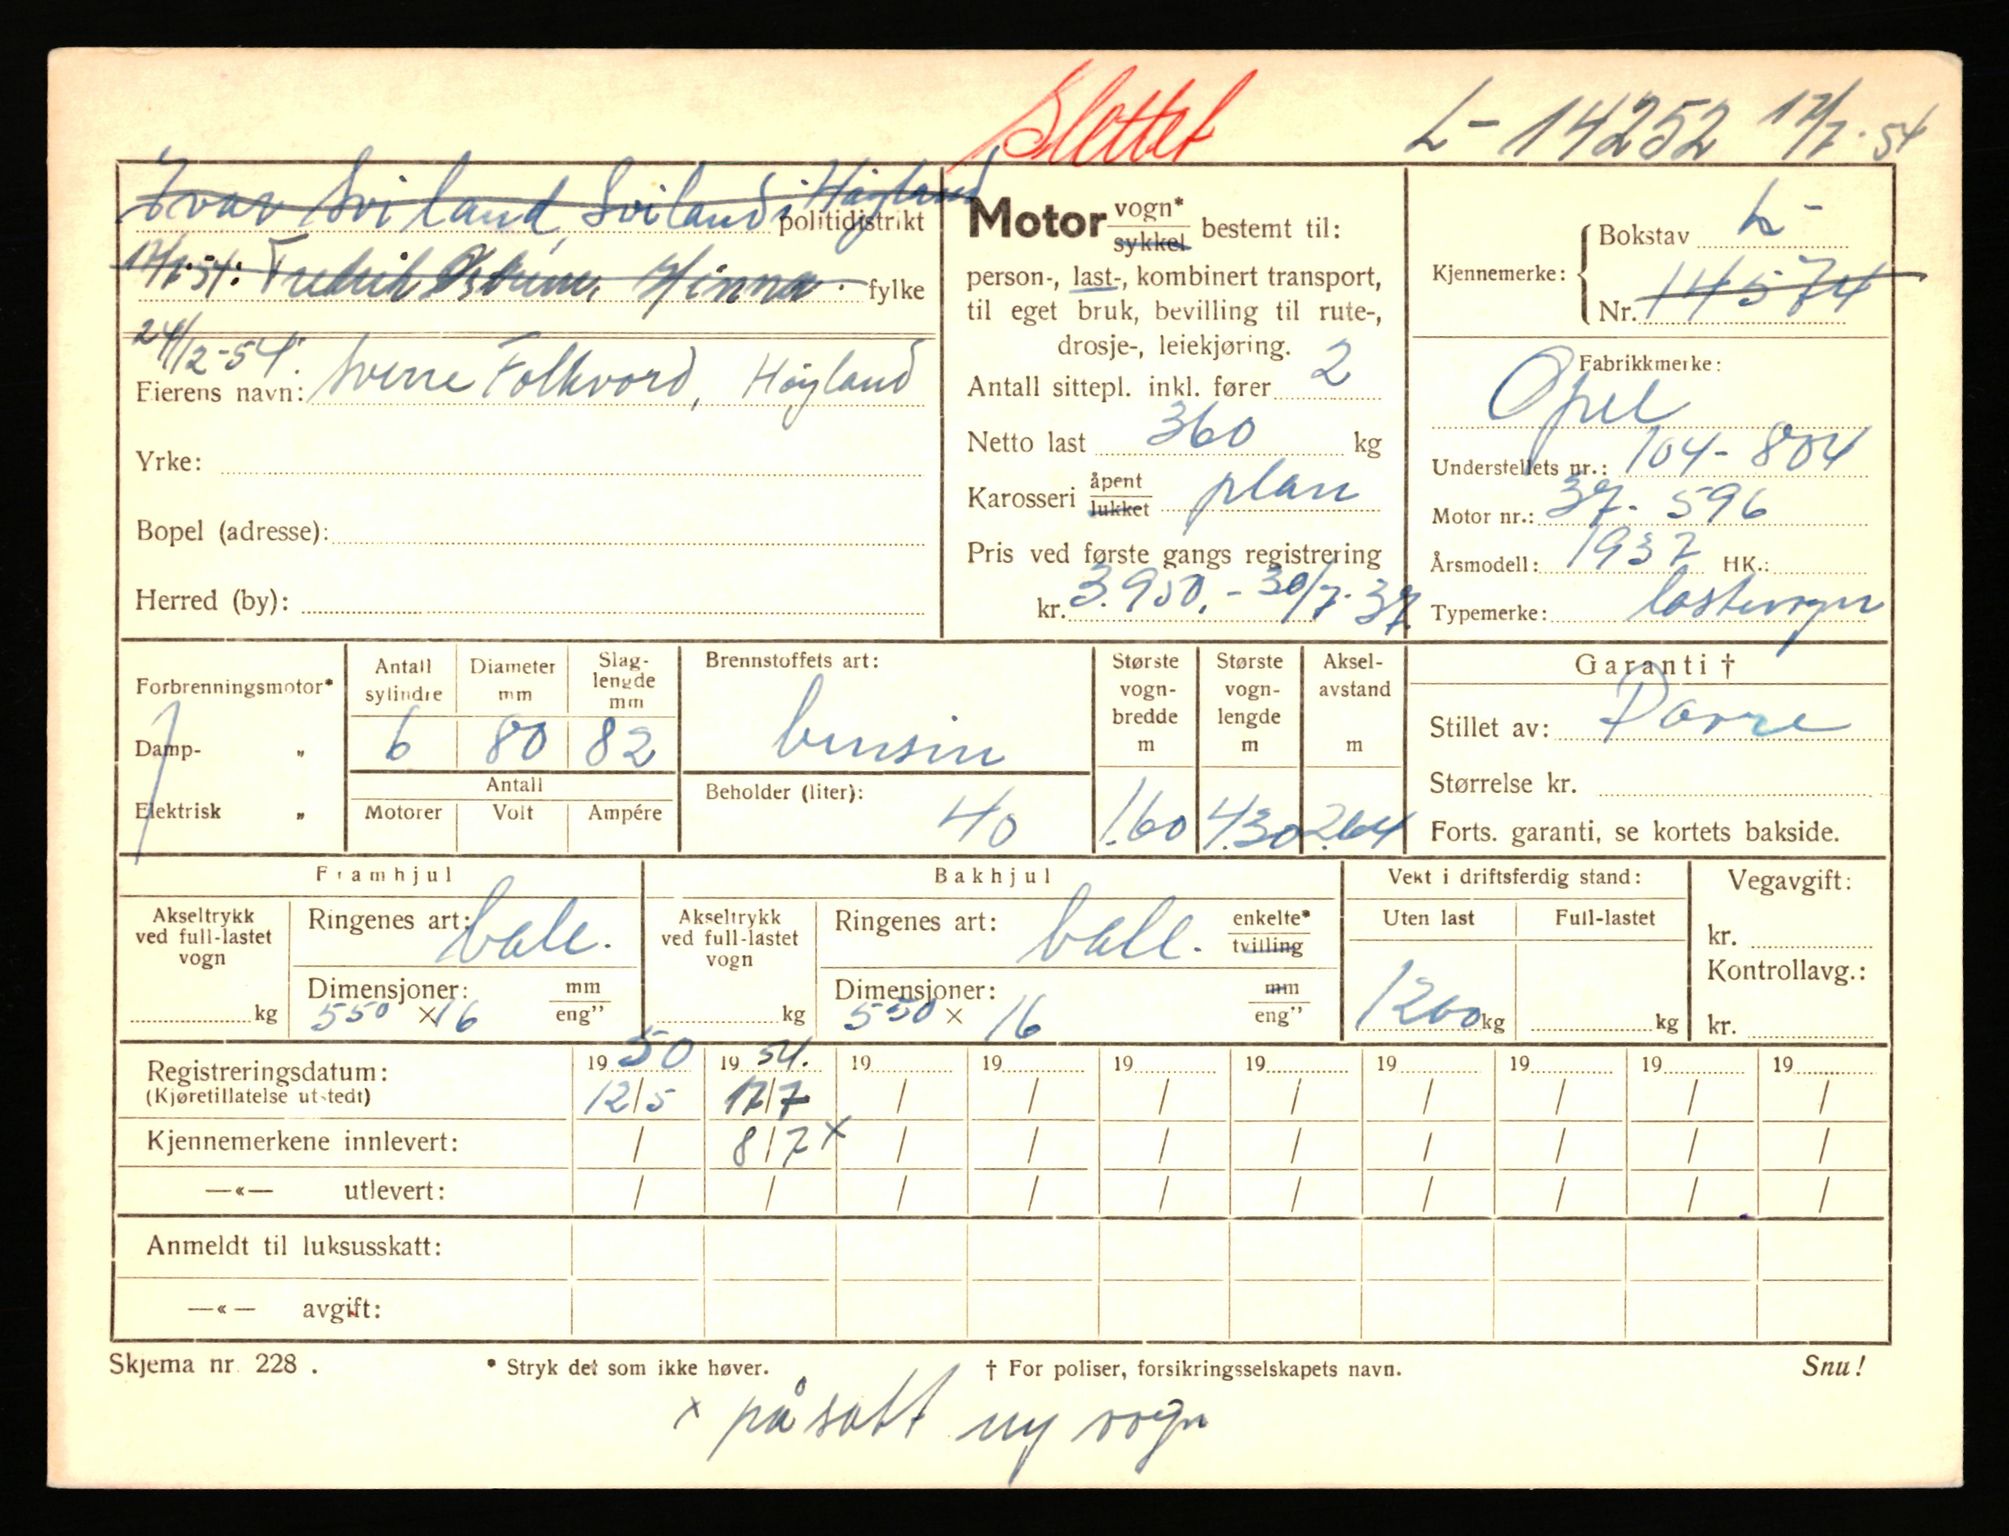 Slettet L- 14252 17/7-54
Ivar Sviland, Sviland, Høyland politidistrikt
17/7-54: Fredrik Hinna fylke
24/12-54.
Eierens navn: Sverre Folkvord, Høyland
Yrke:
Bopel (adresse):
Herred (by):
Motor vogn* sykkel bestemt til:
person-, last-, kombinert transport,
til eget bruk, bevilling til rute-,
drosje-, leiekjøring.
Antall sittepl. inkl. fører 2
Netto last 360 kg
Karosseri åpent lukket plan
Pris ved første gangs registrering
kr. 3.950.- 30/7-37
Kjennemerke: Bokstav L-
Nr. 14574
Fabrikkmerke:
Opel
Understellets nr.: 104-804
Motor nr.: 37-596
Årsmodell: 1937 HK.:
Typemerke: lastevogn
Forbrenningsmotor*
Damp- „
Elektrisk „
Antall sylindre 6
Diameter mm 80
Slag-lengde mm 82
Antall
Motorer Volt Ampére
Brennstoffets art:
bensin
Beholder (liter):
40
Største vogn-bredde m 1.60
Største vogn-lengde m 4.30
Aksel-avstand m 2.64
Garanti †
Stillet av: Dovre
Størrelse kr.
Forts. garanti, se kortets bakside.
Framhjul
Akseltrykk ved full-lastet vogn kg
Ringenes art: ball.
Dimensjoner: mm eng"
550 x 16
Bakhjul
Akseltrykk ved full-lastet vogn kg
Ringenes art: ball. enkelte* tvilling
Dimensjoner: mm eng"
550 x 16
Vekt i driftsferdig stand:
Uten last Full-lastet
1200 kg kg
Vegavgift:
kr.
Kontrollavg.:
kr.
Registreringsdatum: 19 50 19 54. 19 19 19 19 19 19 19 19
(Kjøretillatelse utstedt) 12/5 17/7 / / / / / / / /
Kjennemerkene innlevert: / 8/7 x / / / / / / / /
—«— utlevert: / / / / / / / / / /
Anmeldt til luksusskatt:
—«— avgift:
Skjema nr. 228 . * Stryk det som ikke høver. † For poliser, forsikringsselskapets navn. Snu!
x påsatt ny vogn